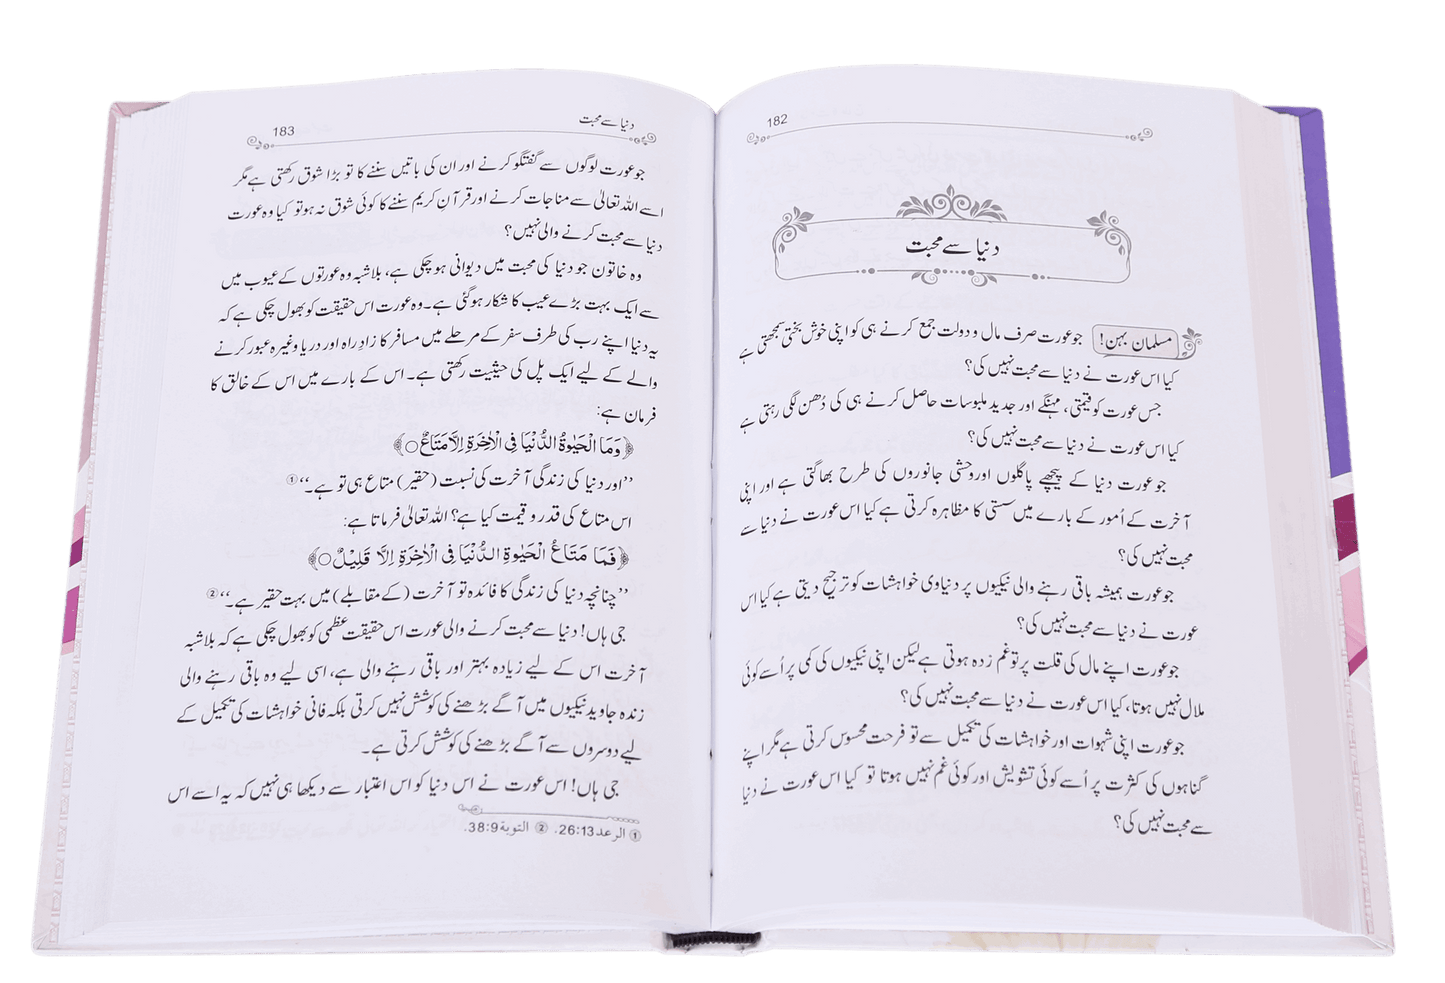 182
دنیا سے محبت
مسلمان بہن! جو عورت صرف مال و دولت جمع کرنے ہی کو اپنی خوش بختی سمجھتی ہے
کیا اس عورت نے دنیا سے محبت نہیں کی؟
جس عورت کو قیمتی، مہنگے اور جدید ملبوسات حاصل کرنے ہی کی دُھن لگی رہتی ہے
کیا اس عورت نے دنیا سے محبت نہیں کی؟
جو عورت دنیا کے پیچھے پاگلوں اور وحشی جانوروں کی طرح بھاگتی ہے اور اپنی
آخرت کے اُمور کے بارے میں سستی کا مظاہرہ کرتی ہے کیا اس عورت نے دنیا سے
محبت نہیں کی؟
جو عورت ہمیشہ باقی رہنے والی نیکیوں پر دنیاوی خواہشات کو ترجیح دیتی ہے کیا اس
عورت نے دنیا سے محبت نہیں کی؟
جو عورت اپنے مال کی قلت پر تو غم زدہ ہوتی ہے لیکن اپنی نیکیوں کی کمی پر اُسے کوئی
ملال نہیں ہوتا، کیا اس عورت نے دنیا سے محبت نہیں کی؟
جو عورت اپنی شہوات اور خواہشات کی تکمیل سے تو فرحت محسوس کرتی ہے مگر اپنے
گناہوں کی کثرت پر اُسے کوئی تشویش اور کوئی غم نہیں ہوتا تو کیا اس عورت نے دنیا
سے محبت نہیں کی؟
دنیا سے محبت 183
جو عورت لوگوں سے گفتگو کرنے اور ان کی باتیں سننے کا تو بڑا شوق رکھتی ہے مگر
اسے اللہ تعالیٰ سے مناجات کرنے اور قرآنِ کریم سننے کا کوئی شوق نہ ہو تو کیا وہ عورت
دنیا سے محبت کرنے والی نہیں؟
وہ خاتون جو دنیا کی محبت میں دیوانی ہو چکی ہے، بلاشبہ وہ عورتوں کے عیوب میں
سے ایک بہت بڑے عیب کا شکار ہو گئی ہے۔ وہ عورت اس حقیقت کو بھول چکی ہے کہ
یہ دنیا اپنے رب کی طرف سفر کے مرحلے میں مسافر کا زادِ راہ اور دریا وغیرہ عبور کرنے
والے کے لیے ایک پل کی حیثیت رکھتی ہے۔ اس کے بارے میں اس کے خالق کا
فرمان ہے:
﴿وَمَا الْحَيٰوةُ الدُّنْيَا فِي الْاٰخِرَةِ اِلَّا مَتَاعٌ ○﴾
’’اور دنیا کی زندگی آخرت کی نسبت (حقیر) متاع ہی تو ہے۔‘‘ ①
اس متاع کی قدر و قیمت کیا ہے؟ اللہ تعالیٰ فرماتا ہے:
﴿فَمَا مَتَاعُ الْحَيٰوةِ الدُّنْيَا فِي الْاٰخِرَةِ اِلَّا قَلِيْلٌ ○﴾
’’چنانچہ دنیا کی زندگی کا فائدہ تو آخرت (کے مقابلے) میں بہت حقیر ہے۔‘‘ ②
جی ہاں! دنیا سے محبت کرنے والی عورت اس حقیقت عظمیٰ کو بھول چکی ہے کہ بلاشبہ
آخرت اس کے لیے زیادہ بہتر اور باقی رہنے والی ہے، اسی لیے وہ باقی رہنے والی
زندہ جاوید نیکیوں میں آگے بڑھنے کی کوشش نہیں کرتی بلکہ فانی خواہشات کی تکمیل کے
لیے دوسروں سے آگے بڑھنے کی کوشش کرتی ہے۔
جی ہاں! اس عورت نے اس دنیا کو اس اعتبار سے دیکھا ہی نہیں کہ یہ اسے اس
① الرعد 26:13. ② التوبة 38:9.